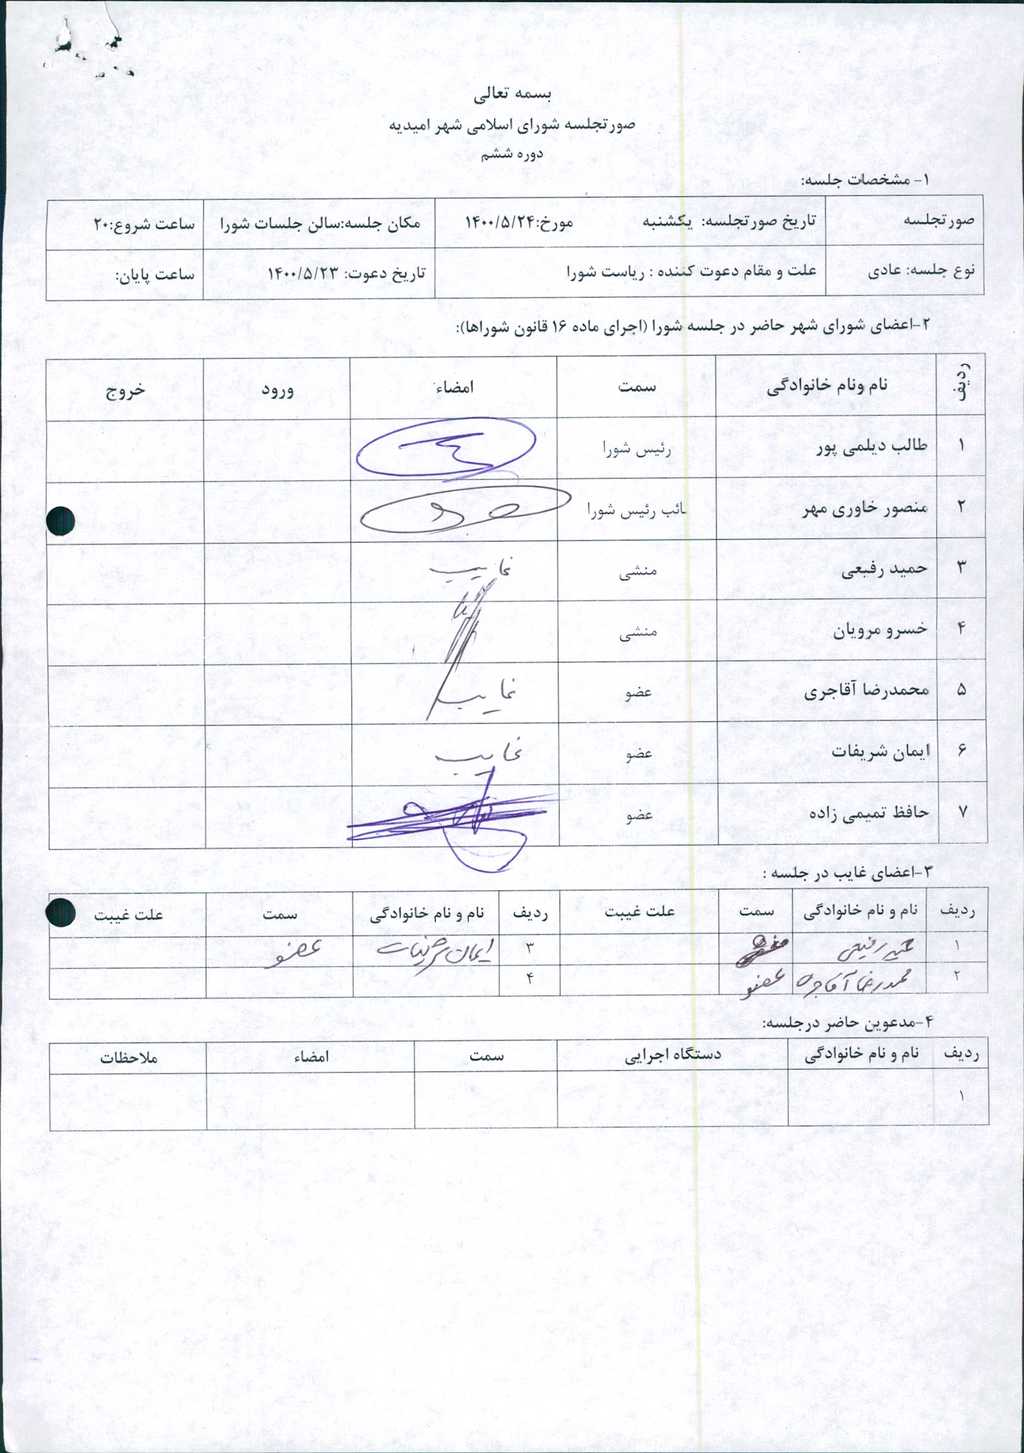 بسمه تعالی
صورتجلسه شورای اسلامی شهر امیدیه
دوره ششم
۱- مشخصات جلسه:
صورتجلسه تاریخ صورتجلسه: یکشنبه مورخ:۱۴۰۰/۵/۲۴ مکان جلسه:سالن جلسات شورا ساعت شروع:۲۰
نوع جلسه: عادی علت و مقام دعوت کننده : ریاست شورا تاریخ دعوت: ۱۴۰۰/۵/۲۳ ساعت پایان:
۲-اعضای شورای شهر حاضر در جلسه شورا (اجرای ماده ۱۶ قانون شوراها):
ردیف نام ونام خانوادگی سمت امضاء ورود خروج
۱ طالب دیلمی پور رئیس شورا
۲ منصور خاوری مهر نائب رئیس شورا
۳ حمید رفیعی منشی غایب
۴ خسرو مرویان منشی
۵ محمدرضا آقاجری عضو غایب
۶ ایمان شریفات عضو غایب
۷ حافظ تمیمی زاده عضو
۳-اعضای غایب در جلسه :
ردیف نام و نام خانوادگی سمت علت غیبت ردیف نام و نام خانوادگی سمت علت غیبت
۱ حمید رفیعی ۳ ایمان شریفات عضو
۲ محمدرضا آقاجری عضو ۴
۴-مدعوین حاضر درجلسه:
ردیف نام و نام خانوادگی دستگاه اجرایی سمت امضاء ملاحظات
۱